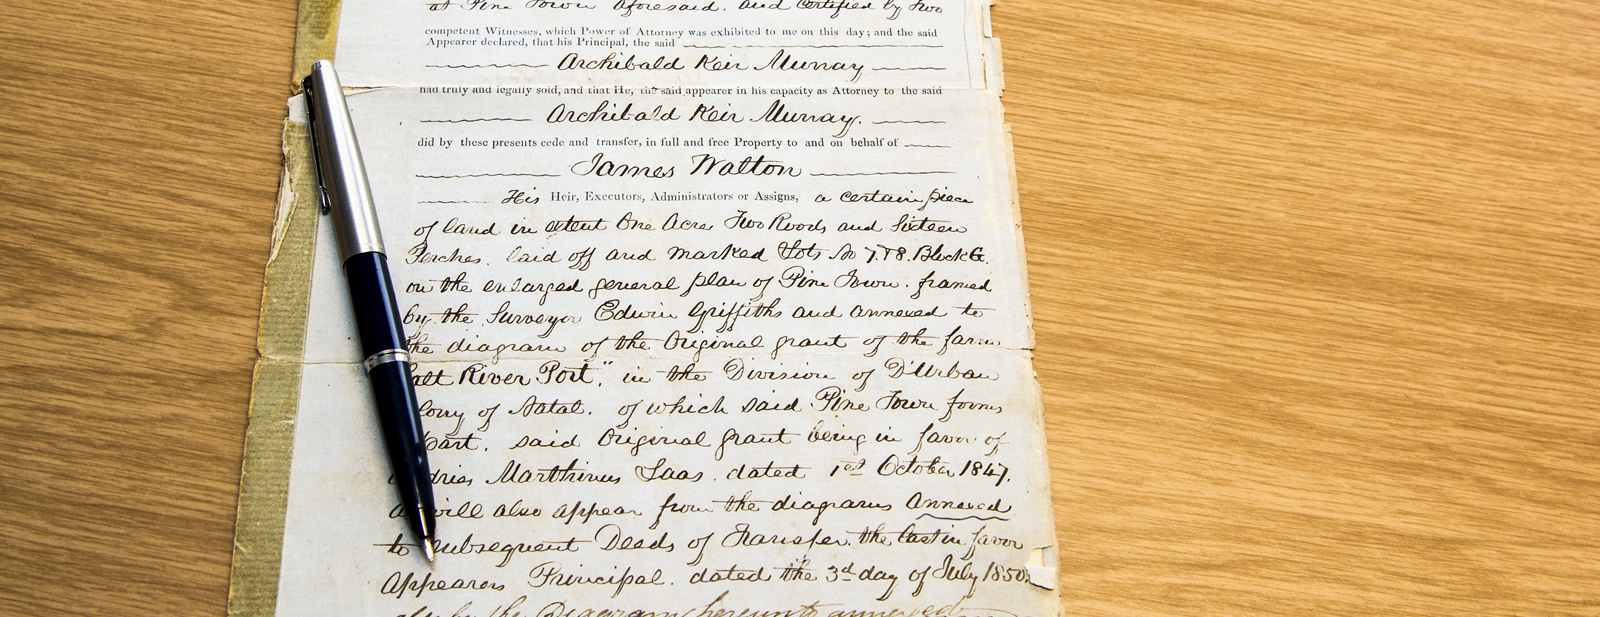 at Pine Town aforesaid. and certified by two
competent Witnesses, which Power of Attorney was exhibited to me on this day; and the said
Appearer declared, that his Principal, the said
Archibald Keir Murray
had truly and legally sold, and that He, the said appearer in his capacity as Attorney to the said
Archibald Keir Murray.
did by these presents cede and transfer, in full and free Property to and on behalf of
James Walton
His Heir, Executors, Administrators or Assigns, a certain piece
of land in extent One Acre Two Roods and Sixteen
Perches. laid off and marked Lots No 7.&8. Block G.
on the enlarged general plan of Pine Town. framed
by the Surveyor Edwin Griffiths and annexed to
the diagram of the Original grant of the farm
alt River Port," in the Division of D'Urban
lony of Natal. of which said Pine Town forms
part. said Original grant being in favor of
dries Marthinus Laas. dated 1st October 1847.
will also appear from the diagrams annexed
to subsequent Deeds of Transfer. the last in favor
Appearers Principal. dated the 3d day of July 1850
by the Diagram hereunto annexed